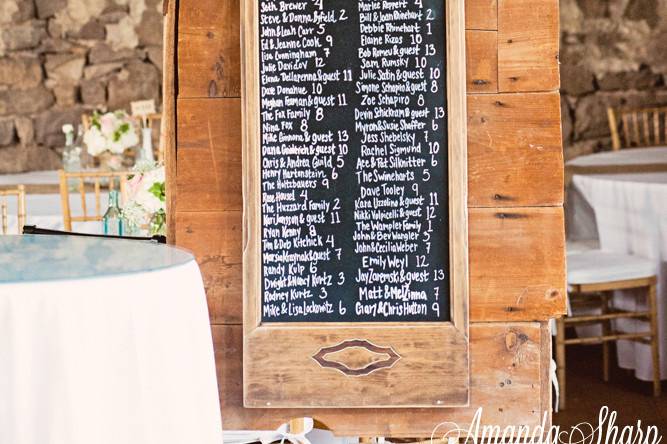 Seth Brewer 4
Steve & Donna Byfield 2
John & Leah Carr 5
Ed & Jeanne Cook 9
Lisa Cunningham 7
Julie Davidav 12
Elena Dellapenna & guest 11
Dave Donohue 10
Meghan Foxman & guest 11
The Fox Family 8
Nina Fox 8
Mike Ginnona & guest 13
Dana Goodrich & guest 10
Chris & Andrea Guild 5
Henry Hartenstein 6
The Holtzbauers 9
Rose Housel 4
The Huzzard Family 2
Keri Jansson & guest 11
Ryan Kenny 8
Tim & Deb Kitchick 4
Marsia Kraynak & guest 7
Randy Kulp 6
Dwight & Nancy Kurtz 3
Rodney Kurtz 3
Mike & Lisa Lockowitz 6
Marlee Rappett 4
Bill & Joan Rhinehart 2
Debbie Rhinehart 1
Elaine Rizos 10
Bob Romeu & guest 13
Sam Rumsky 10
Julie Satin & guest 10
Simone Schapiro & guest 8
Zoe Schapiro 8
Devin Schickram & guest 13
Myron & Susie Shaffer 6
Jess Shebelsky 7
Rachel Sigmund 10
Ace & Pat Silknitter 6
The Swineharts 5
Dave Tooley 9
Kara Uzzolino & guest 11
Nikki Volpicelli & guest 12
The Wampler Family 1
John & Bev Wangler 5
John & Cecilia Weber 7
Emily Weyl 12
Jay Zaremski & guest 13
Matt & Mel Zinna 7
Gary & Chris Hutton 9
Amanda Sharp